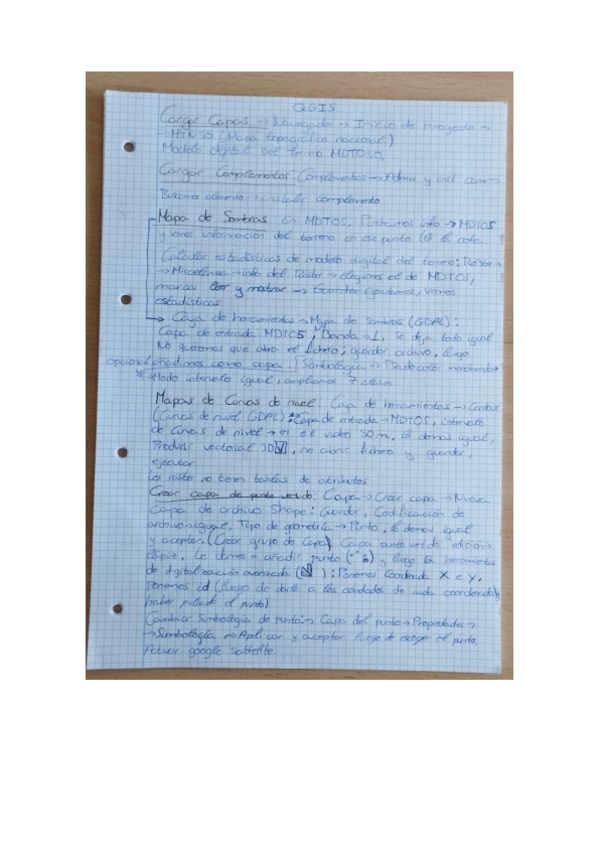 QGIS
Cargar Capas → Navegador → Inicio de proyecto →
→ MTN50 (Mapa topográfico nacional)
Modelo digital Del Terreno MDT05
Cargar Complementos: Complementos → Admin y inst com →
Buscamos elemento → instalar complemento
Mapa de Sombras En MDT05. Pinchamos info → MDT05
y información del terreno en ese punto
Calcular estadísticas de modelo digital del terreno: Ráster →
→ Miscelánea → info del Ráster → elegimos el de MDT05,
marcas y mostrar → Guardar Ejecutamos, vemos
estadísticas
Caja de herramientas → Mapa de sombras (GDAL):
Capa de entrada MDT05, Banda 1, se deja todo igual
No queremos que abra el fichero, guardar archivo, luego
opcional añadimos como capa. Simbología → Pseudocolor
→ Modo intervalo igual, ampliamos 7 clases
Mapas de Curvas de nivel: Caja de herramientas →
(Curvas de nivel GDAL) Capa de entrada → MDT05, intervalo
de Curvas de nivel → en el video 50m, lo demas igual,
Producir vectorial 3D, no abrir fichero y guardar,
ejecutar.
Los ráster no tienen tablas de atributos
Crear capa de punto vertido: Capa → Crear capa → Nueva
Capa de archivo Shape: Guardar, Codificación de
archivo igual, Tipo de geometría → Punto, lo demas igual
y aceptar. (Crear grupo de Capa) Capa punto vertido
lápiz. Le damos a añadir punto y luego herramientas
de digitalización avanzada: Ponemos Coordenada X e Y,
Ponemos id (luego de darle a los candados de cada coordenada y
haber pulsado el punto)
Cambiar Simbología de punto: → Capa del punto → Propiedades →
→ Simbología → Aplicar y aceptar luego de escoger el punto.
Activar google satellite.